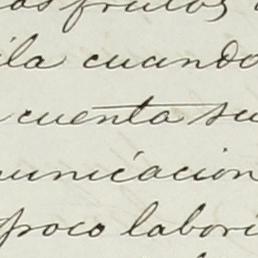 os frutos
ila cuando
cuenta su
unicacion
poco labori